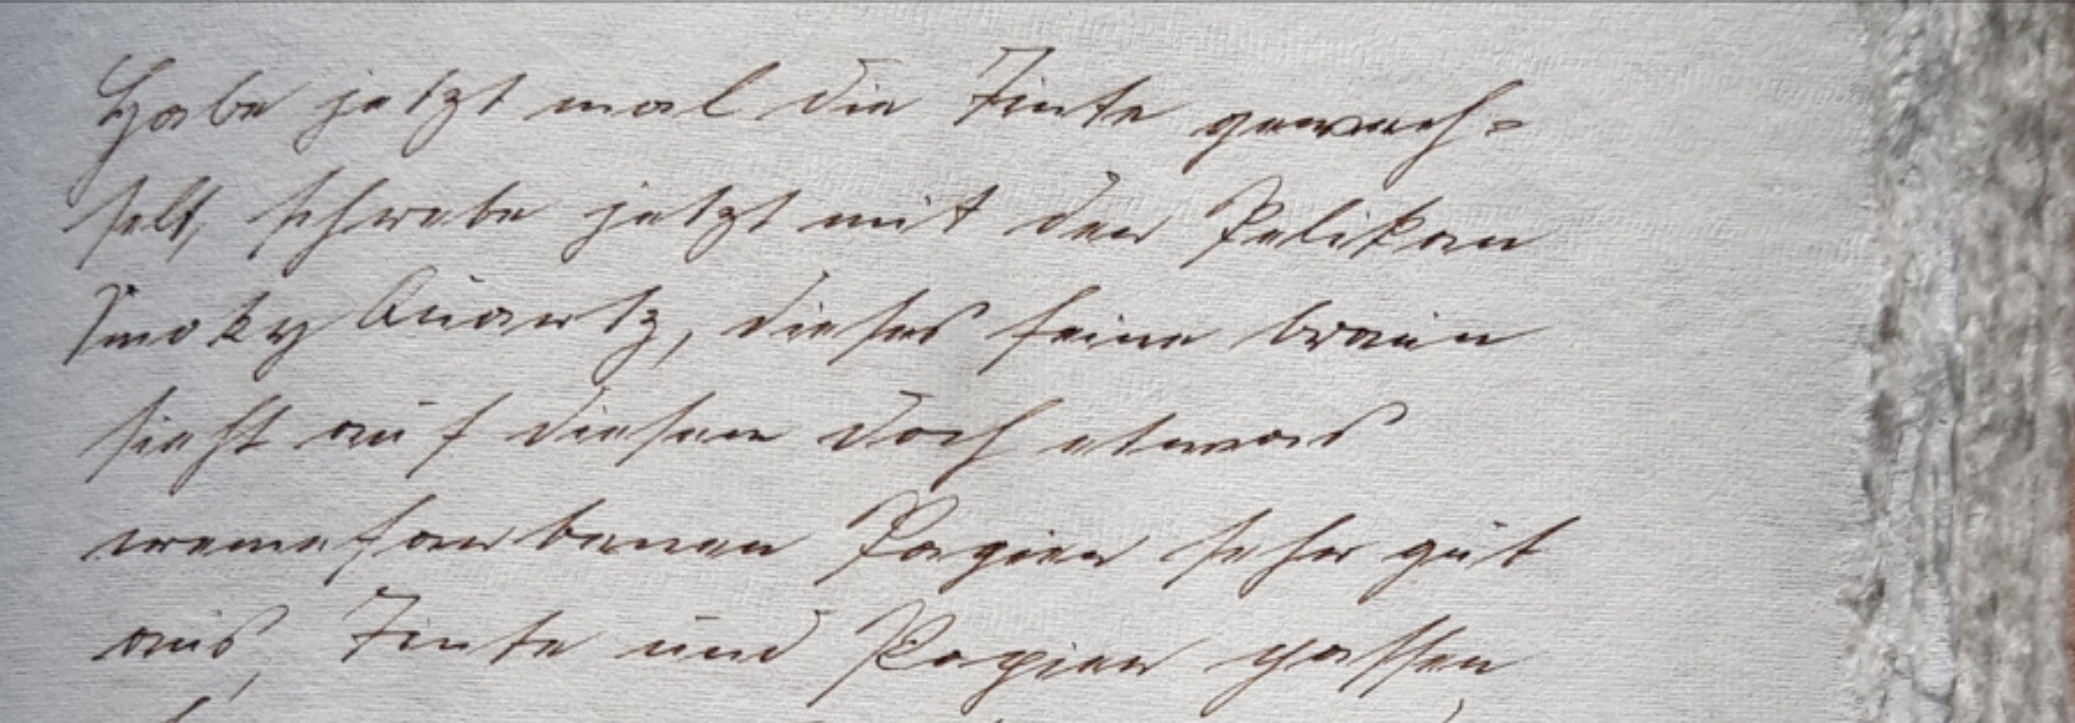 Habe jetzt mal die Tinte gewech=
selt, schreibe jetzt mit der Pelikan
Smoky Quartz, dieses feine braun
sieht auf diesem doch etwas
cremefarbenen Papier sehr gut
aus, Tinte und Papier passen